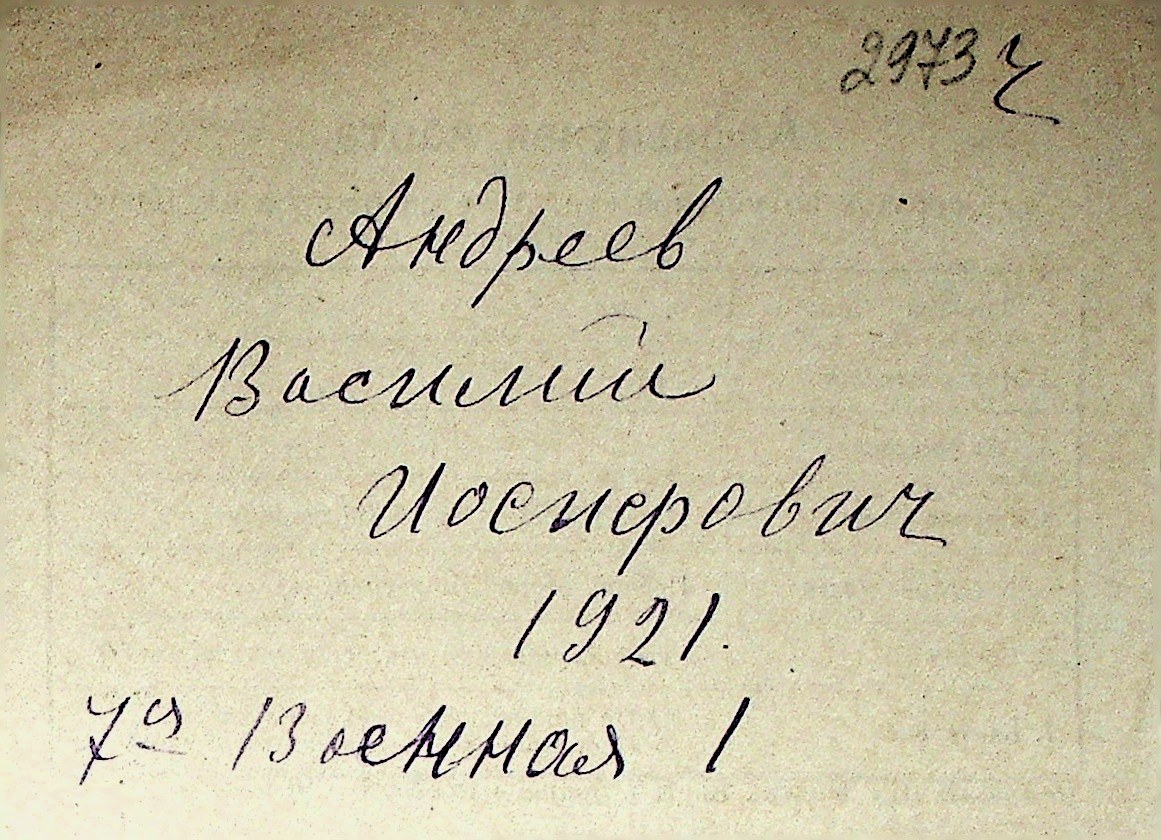 2973 ч
Андреев
Василий
Иосифович
1921.
7я Военная 1